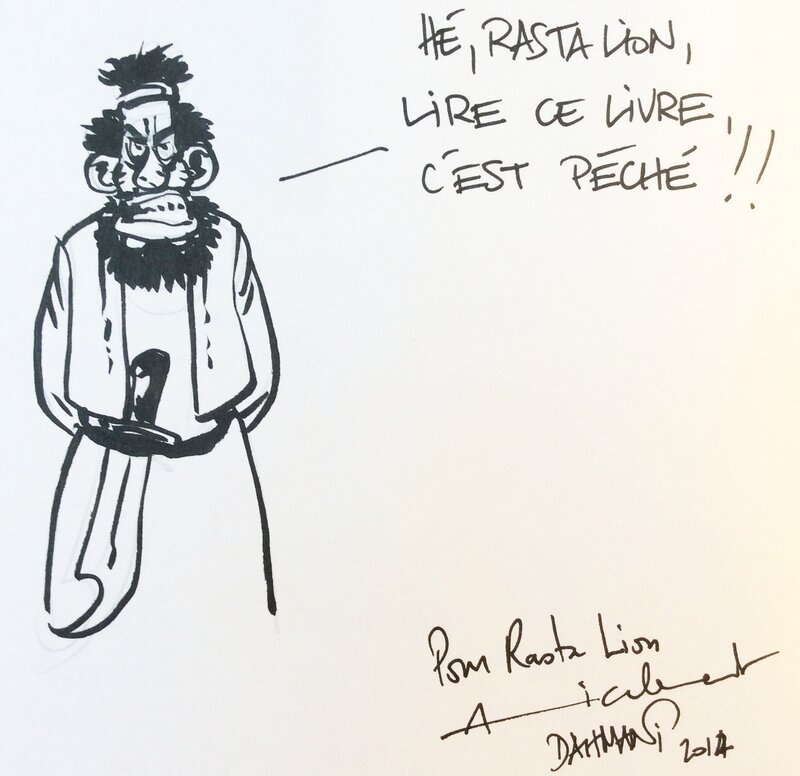 HÉ, RASTA LION,
LIRE CE LIVRE,
C'EST PÉCHÉ !!
Pour Rasta Lion
Amicalement
DAHMANI 2014